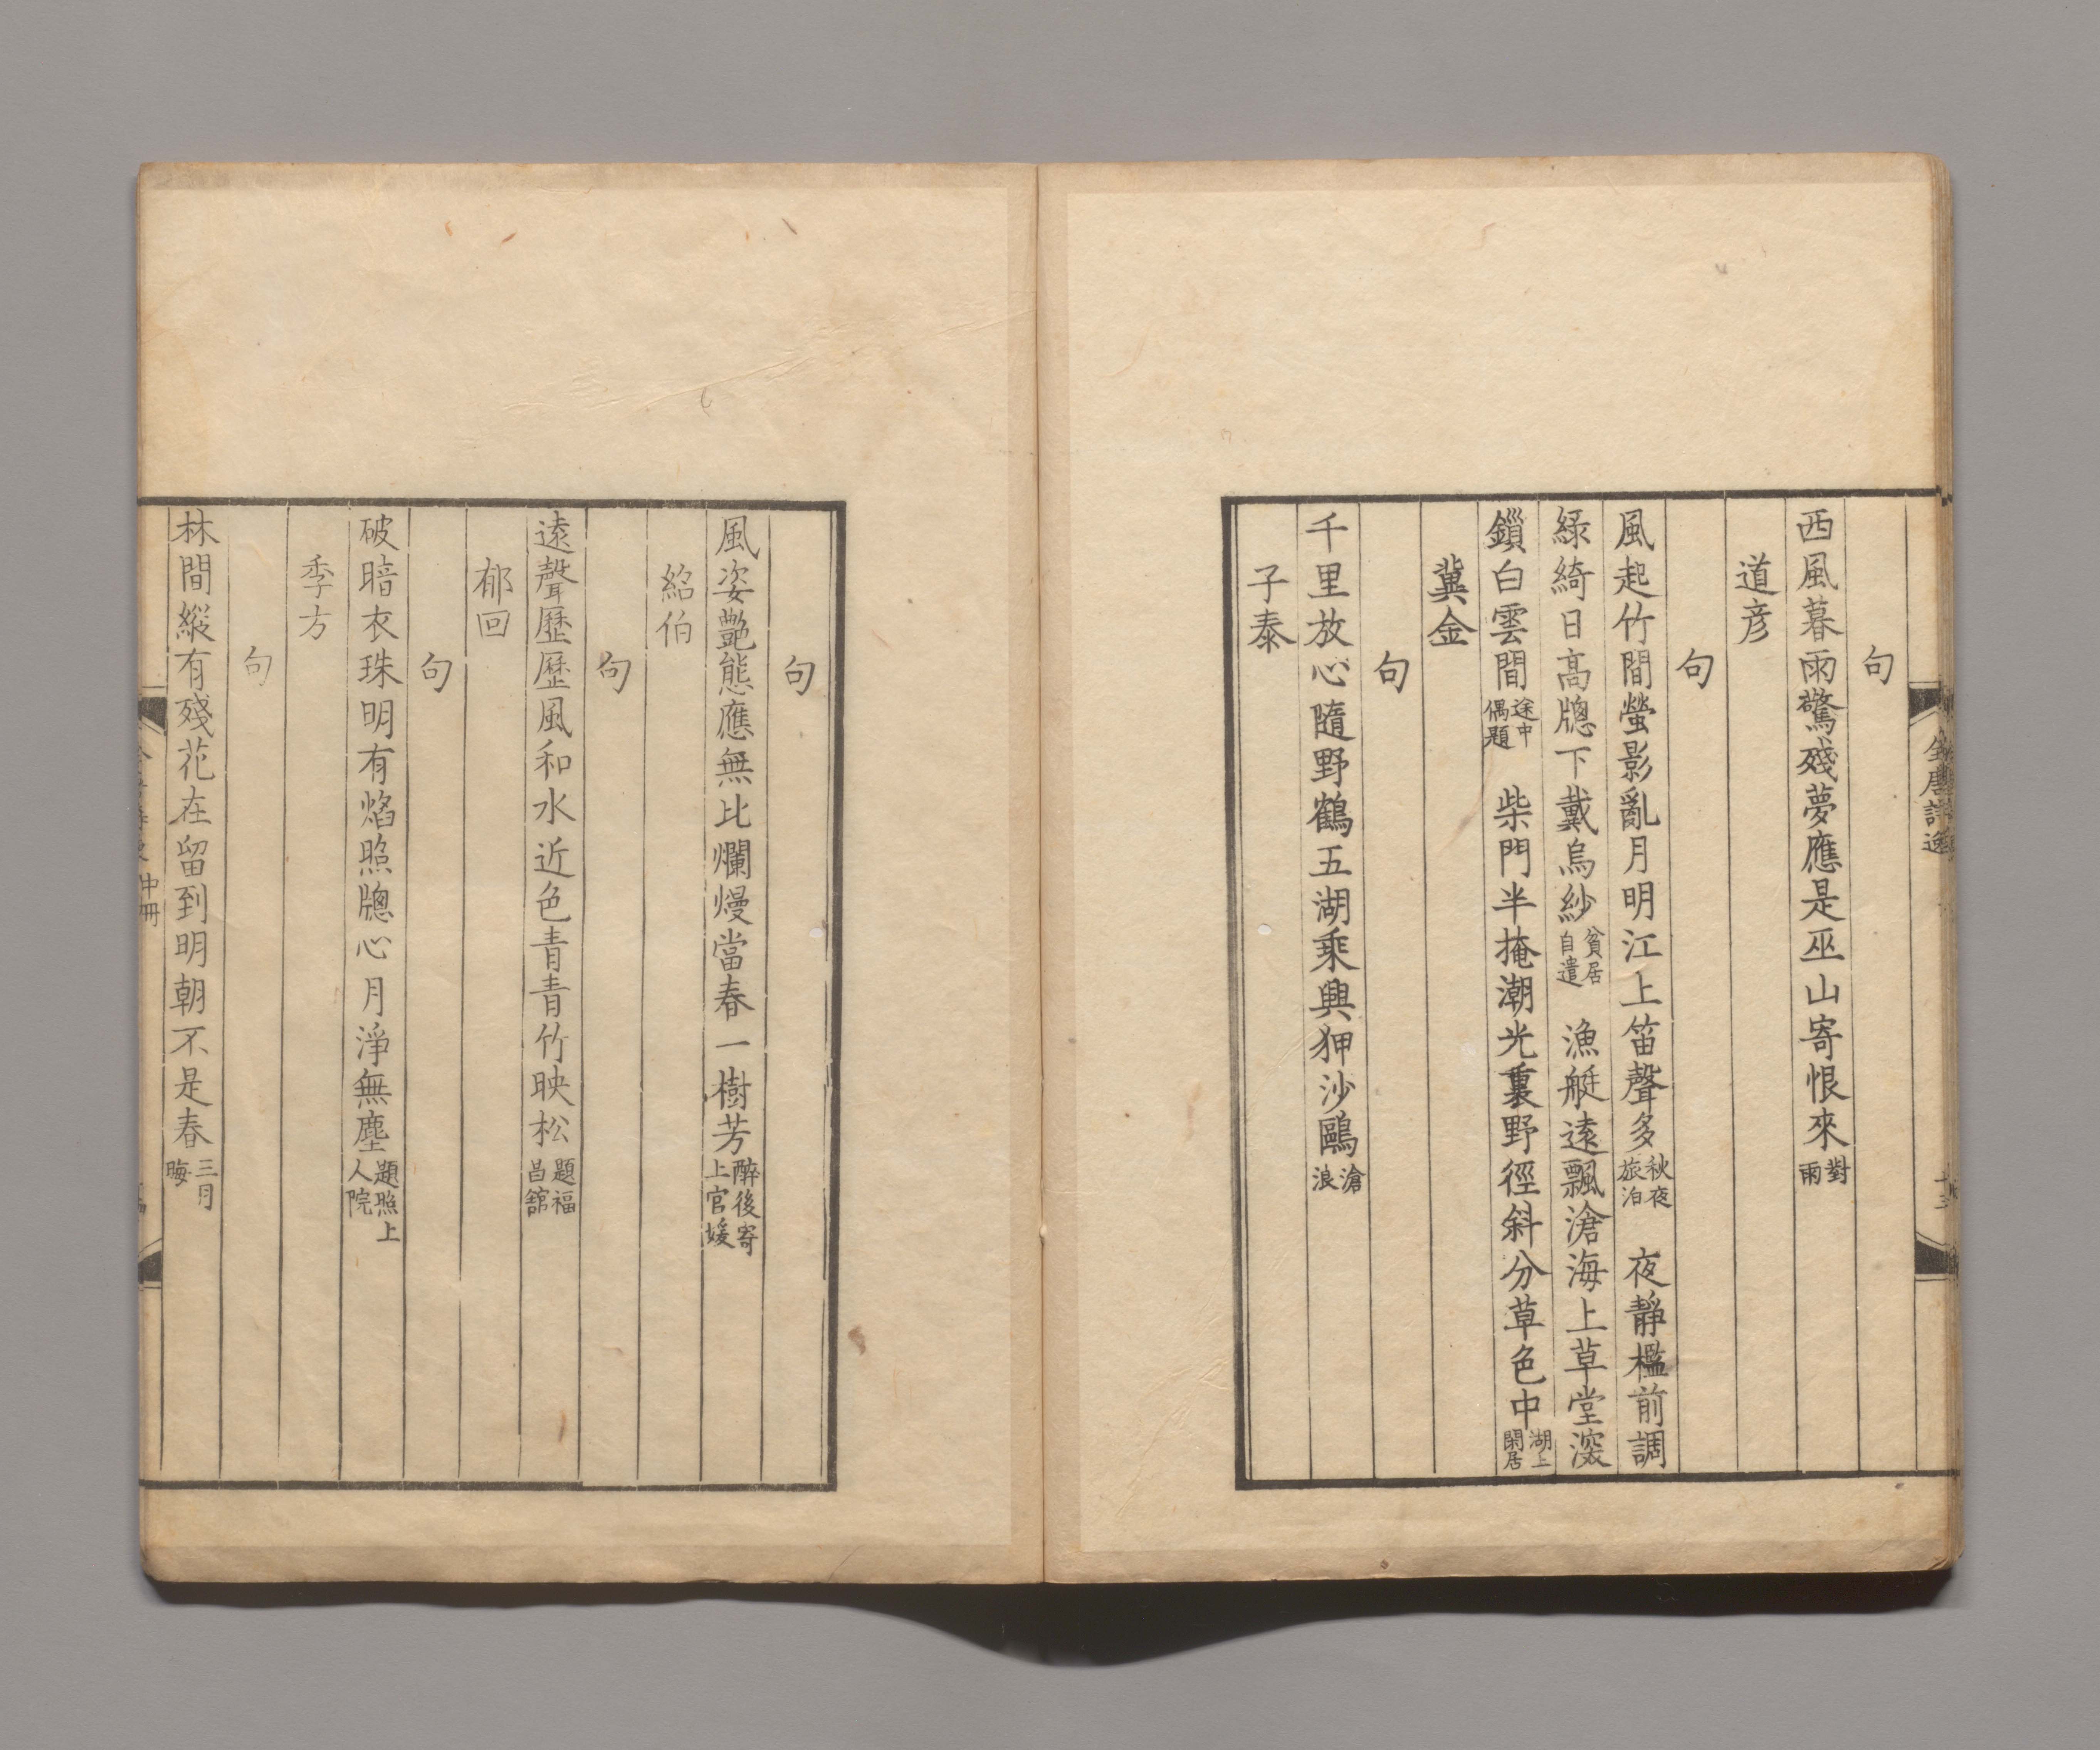 句
西風暮雨驚殘夢應是巫山寄恨來對雨
道彥
句
風起竹間螢影亂月明江上笛聲多秋夜旅泊 夜靜檻前調
綠綺日高牕下戴烏紗貧居自遣 漁艇遠飄滄海上草堂深
鎖白雲間途中偶題 柴門半掩潮光裏野徑斜分草色中湖上閑居
冀金
句
千里放心隨野鶴五湖乘興狎沙鷗滄浪
子泰
句
風姿艷態應無比爛熳當春一樹芳醉後寄上官媛
紹伯
句
遠聲歷歷風和水近色青青竹映松題福昌舘
郁回
句
破暗衣珠明有焰照牕心月淨無塵題照上人院
季方
句
林間縱有殘花在留到明朝不是春三月晦
全唐詩逸
中冊